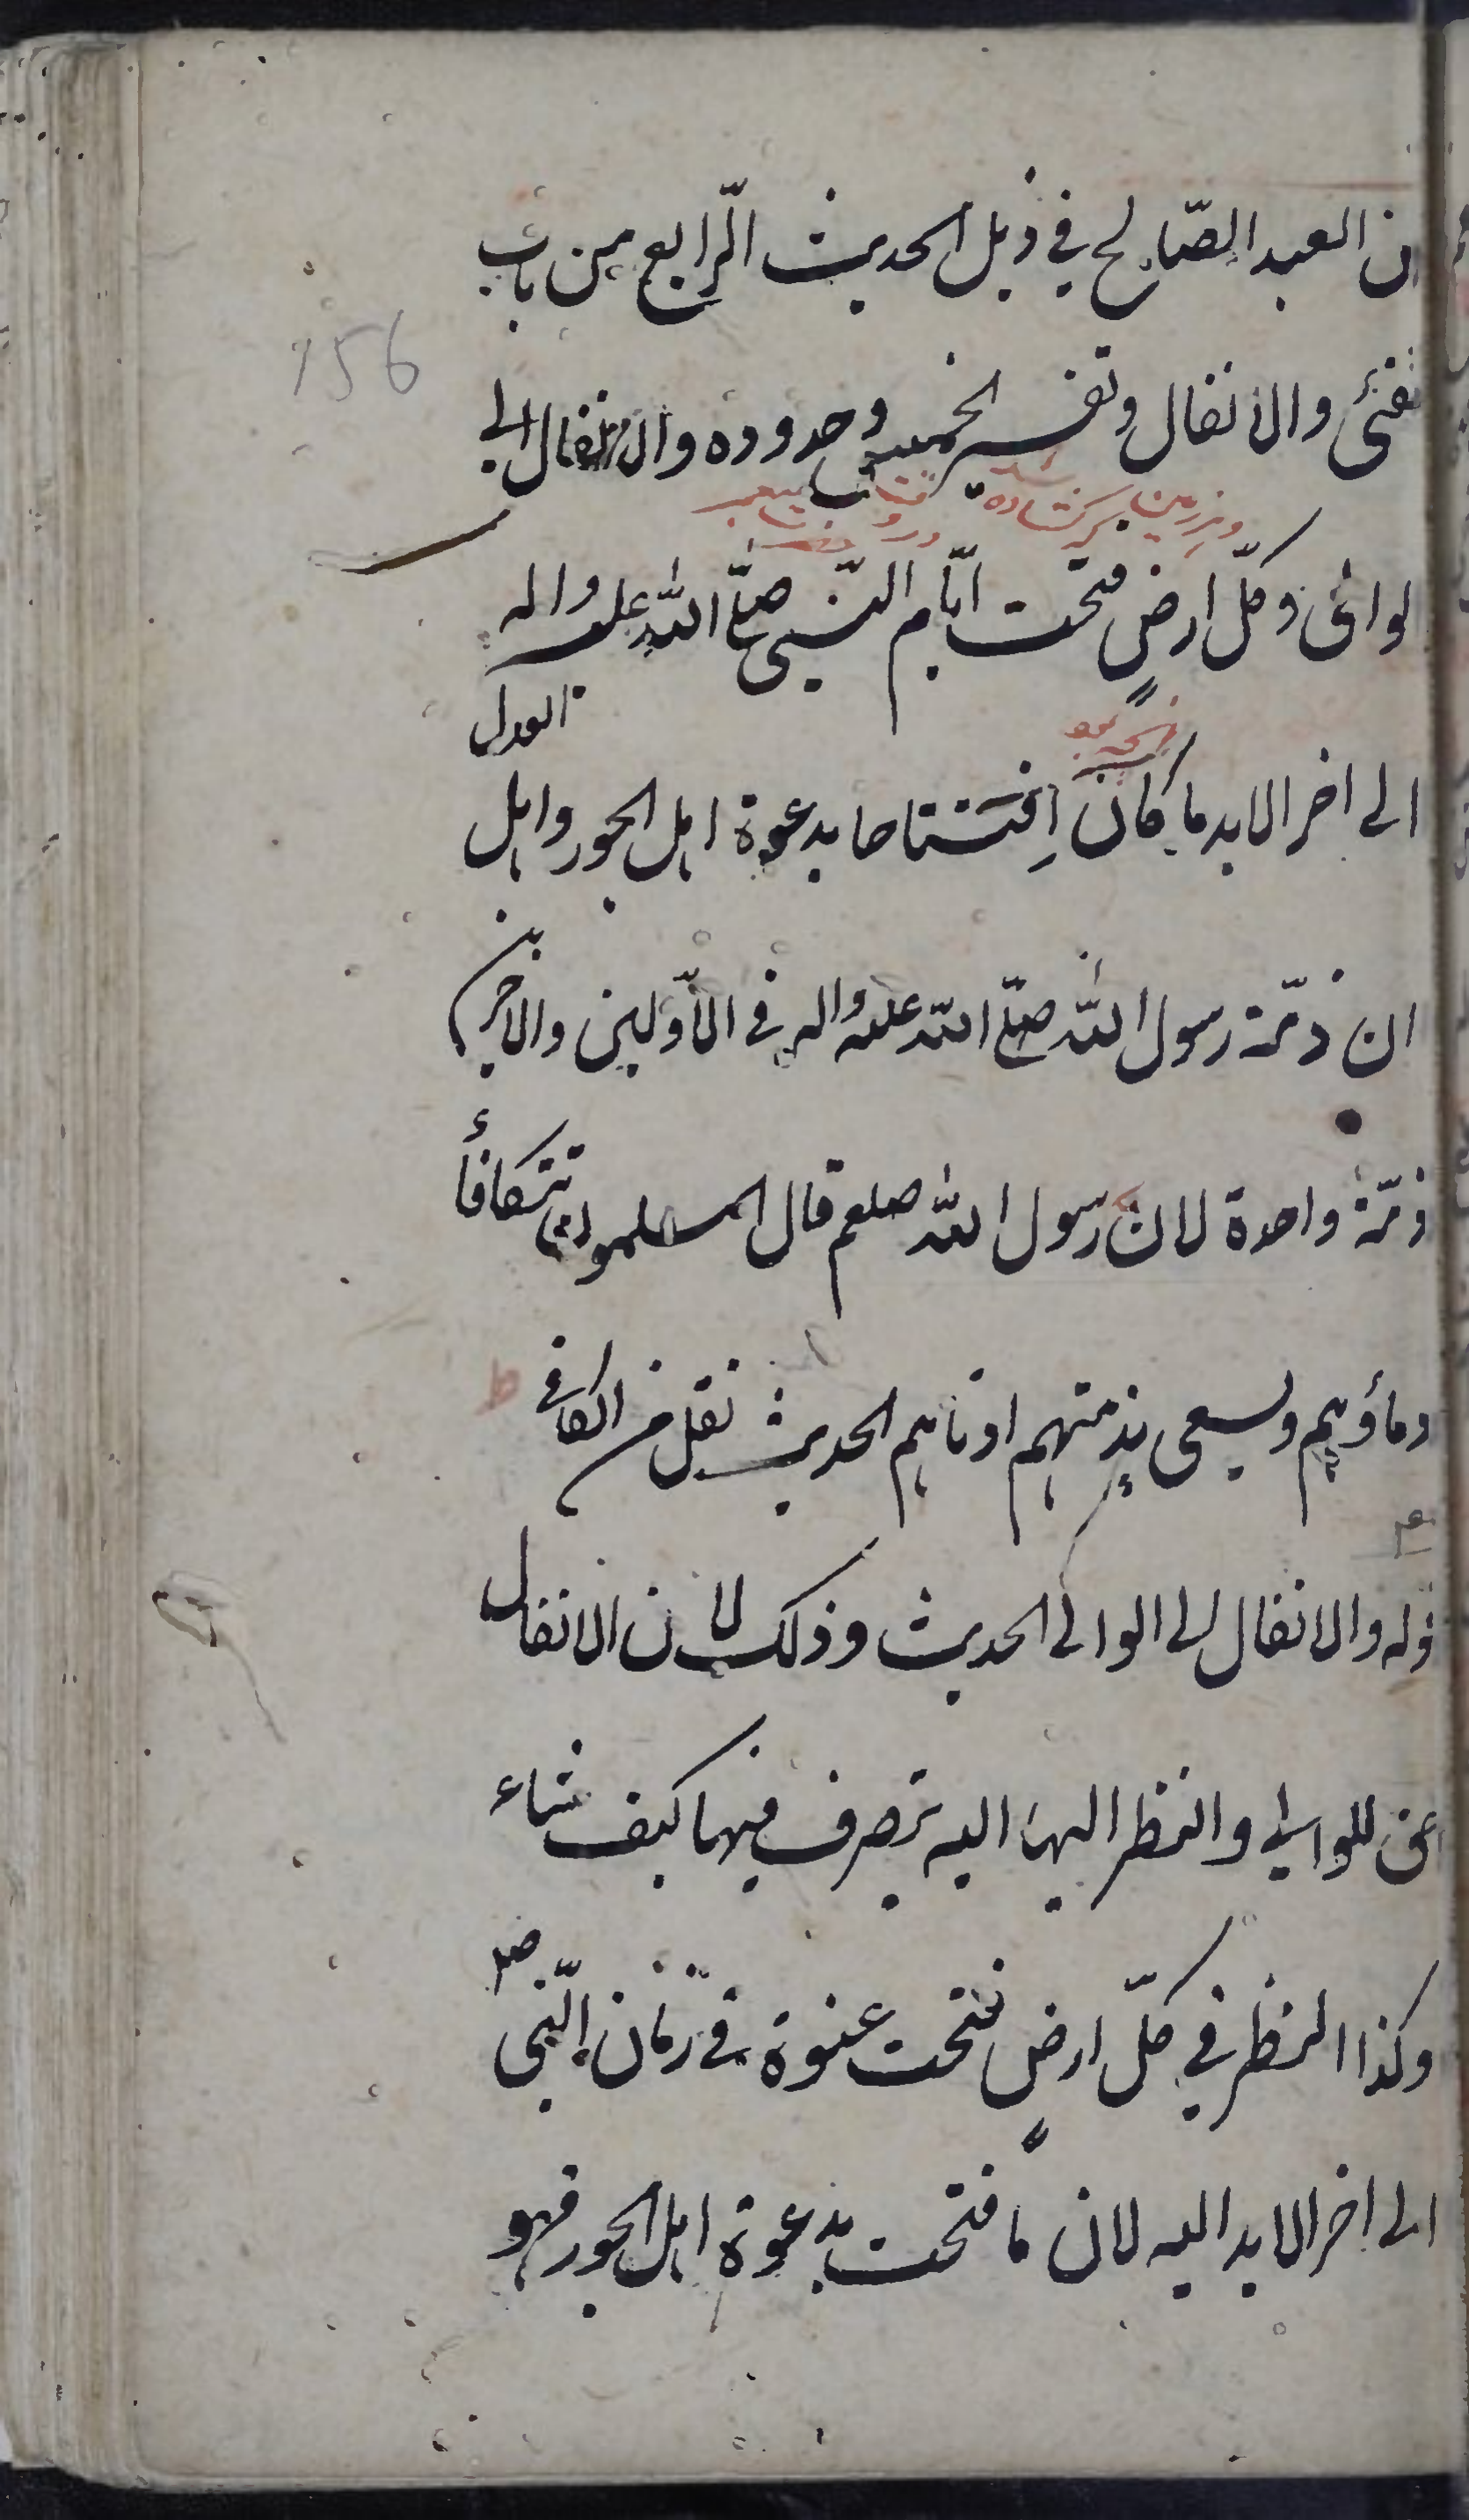 ن العبد الصّالح في ذيل الحديث الرّابع من باب
156
لفئ والانفال وتفسير الخمس وحدوده والانفال الى
وهر زمين كه كشاده شد
لوالى وكلّ ارضٍ فتحت ايّام النّبي صلّى اللّه عليه واله
العدل
الى اخر الابد ما كان اِفتتاحا بدعوة اهل الجور واهل
ان ذمّة رسول اللّه صلّى اللّه عليه واله في الأوّلين والاخرين
ذمّة واحدة لان رسول اللّه صلعم قال المسلمون تتكافأ
دماؤهم ويسعى بذمتهم ادناهم الحديث نقل من الكافي
ط
قوله والانفال الى الوالى الحديث وذلك لان الانفال
حق للوالي والنظر اليها اليه يتصرف فيها كيف شاء
وكذا النظر في كلّ ارضٍ فتحت عنوة في زمان النّبي ص
الى اخر الابد اليه لان ما فتحت بدعوة اهل الجور فهو